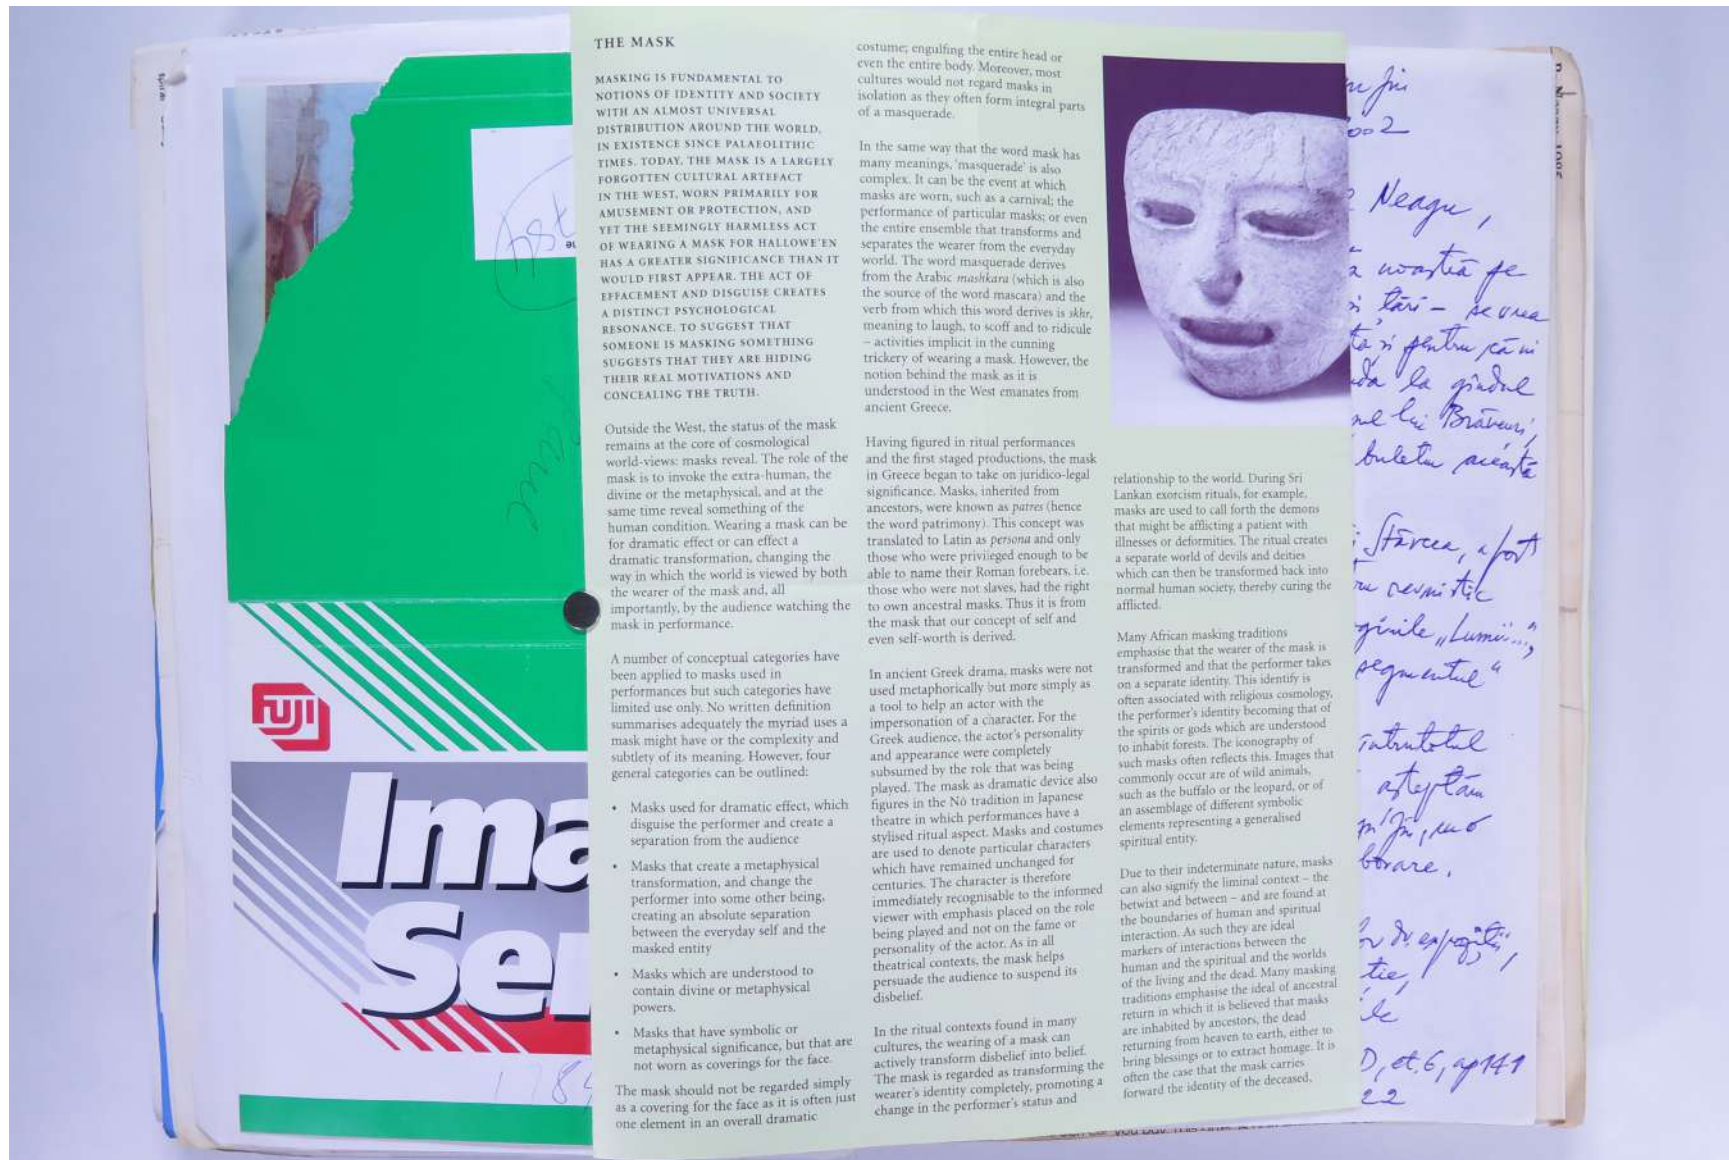 THE MASK
MASKING IS FUNDAMENTAL TO
NOTIONS OF IDENTITY AND SOCIETY
WITH AN ALMOST UNIVERSAL
DISTRIBUTION AROUND THE WORLD,
IN EXISTENCE SINCE PALAEOLITHIC
TIMES. TODAY, THE MASK IS A LARGELY
FORGOTTEN CULTURAL ARTEFACT
IN THE WEST, WORN PRIMARILY FOR
AMUSEMENT OR PROTECTION, AND
YET THE SEEMINGLY HARMLESS ACT
OF WEARING A MASK FOR HALLOWE'EN
HAS A GREATER SIGNIFICANCE THAN IT
WOULD FIRST APPEAR. THE ACT OF
EFFACEMENT AND DISGUISE CREATES
A DISTINCT PSYCHOLOGICAL
RESONANCE. TO SUGGEST THAT
SOMEONE IS MASKING SOMETHING
SUGGESTS THAT THEY ARE HIDING
THEIR REAL MOTIVATIONS AND
CONCEALING THE TRUTH.
Outside the West, the status of the mask
remains at the core of cosmological
world-views: masks reveal. The role of the
mask is to invoke the extra-human, the
divine or the metaphysical, and at the
same time reveal something of the
human condition. Wearing a mask can be
for dramatic effect or can effect a
dramatic transformation, changing the
way in which the world is viewed by both
the wearer of the mask and, all
importantly, by the audience watching the
mask in performance.
A number of conceptual categories have
been applied to masks used in
performances but such categories have
limited use only. No written definition
summarises adequately the myriad uses a
mask might have or the complexity and
subtlety of its meaning. However, four
general categories can be outlined:
• Masks used for dramatic effect, which
disguise the performer and create a
separation from the audience
• Masks that create a metaphysical
transformation, and change the
performer into some other being,
creating an absolute separation
between the everyday self and the
masked entity
• Masks which are understood to
contain divine or metaphysical
powers.
• Masks that have symbolic or
metaphysical significance, but that are
not worn as coverings for the face.
The mask should not be regarded simply
as a covering for the face as it is often just
one element in an overall dramatic
costume; engulfing the entire head or
even the entire body. Moreover, most
cultures would not regard masks in
isolation as they often form integral parts
of a masquerade.
In the same way that the word mask has
many meanings, 'masquerade' is also
complex. It can be the event at which
masks are worn, such as a carnival; the
performance of particular masks; or even
the entire ensemble that transforms and
separates the wearer from the everyday
world. The word masquerade derives
from the Arabic mashkara (which is also
the source of the word mascara) and the
verb from which this word derives is skhr,
meaning to laugh, to scoff and to ridicule
– activities implicit in the cunning
trickery of wearing a mask. However, the
notion behind the mask as it is
understood in the West emanates from
ancient Greece.
Having figured in ritual performances
and the first staged productions, the mask
in Greece began to take on juridico-legal
significance. Masks, inherited from
ancestors, were known as patres (hence
the word patrimony). This concept was
translated to Latin as persona and only
those who were privileged enough to be
able to name their Roman forebears, i.e.
those who were not slaves, had the right
to own ancestral masks. Thus it is from
the mask that our concept of self and
even self-worth is derived.
In ancient Greek drama, masks were not
used metaphorically but more simply as
a tool to help an actor with the
impersonation of a character. For the
Greek audience, the actor's personality
and appearance were completely
subsumed by the role that was being
played. The mask as dramatic device also
figures in the Nō tradition in Japanese
theatre in which performances have a
stylised ritual aspect. Masks and costumes
are used to denote particular characters
which have remained unchanged for
centuries. The character is therefore
immediately recognisable to the informed
viewer with emphasis placed on the role
being played and not on the fame or
personality of the actor. As in all
theatrical contexts, the mask helps
persuade the audience to suspend its
disbelief.
In the ritual contexts found in many
cultures, the wearing of a mask can
actively transform disbelief into belief.
The mask is regarded as transforming the
wearer's identity completely, promoting a
change in the performer's status and
relationship to the world. During Sri
Lankan exorcism rituals, for example,
masks are used to call forth the demons
that might be afflicting a patient with
illnesses or deformities. The ritual creates
a separate world of devils and deities
which can then be transformed back into
normal human society, thereby curing the
afflicted.
Many African masking traditions
emphasise that the wearer of the mask is
transformed and that the performer takes
on a separate identity. This identify is
often associated with religious cosmology,
the performer's identity becoming that of
the spirits or gods which are understood
to inhabit forests. The iconography of
such masks often reflects this. Images that
commonly occur are of wild animals,
such as the buffalo or the leopard, or of
an assemblage of different symbolic
elements representing a generalised
spiritual entity.
Due to their indeterminate nature, masks
can also signify the liminal context – the
betwixt and between – and are found at
the boundaries of human and spiritual
interaction. As such they are ideal
markers of interactions between the
human and the spiritual and the worlds
of the living and the dead. Many masking
traditions emphasise the ideal of ancestral
return in which it is believed that masks
are inhabited by ancestors, the dead
returning from heaven to earth, either to
bring blessings or to extract homage. It is
often the case that the mask carries
forward the identity of the deceased,
FUJI
Ima
Ser
1784
Jiu
2002
Neagu,
noastră pe
țări – se vrea
și pentru că ni
la gîndul
lui Brâncuși,
buletin această
Stârcea, a fost
"Lumii...",
segmentul"
întrutotul
așteptăm
Jiu, cu o
expoziții,
D, et. 6, ap 141
22